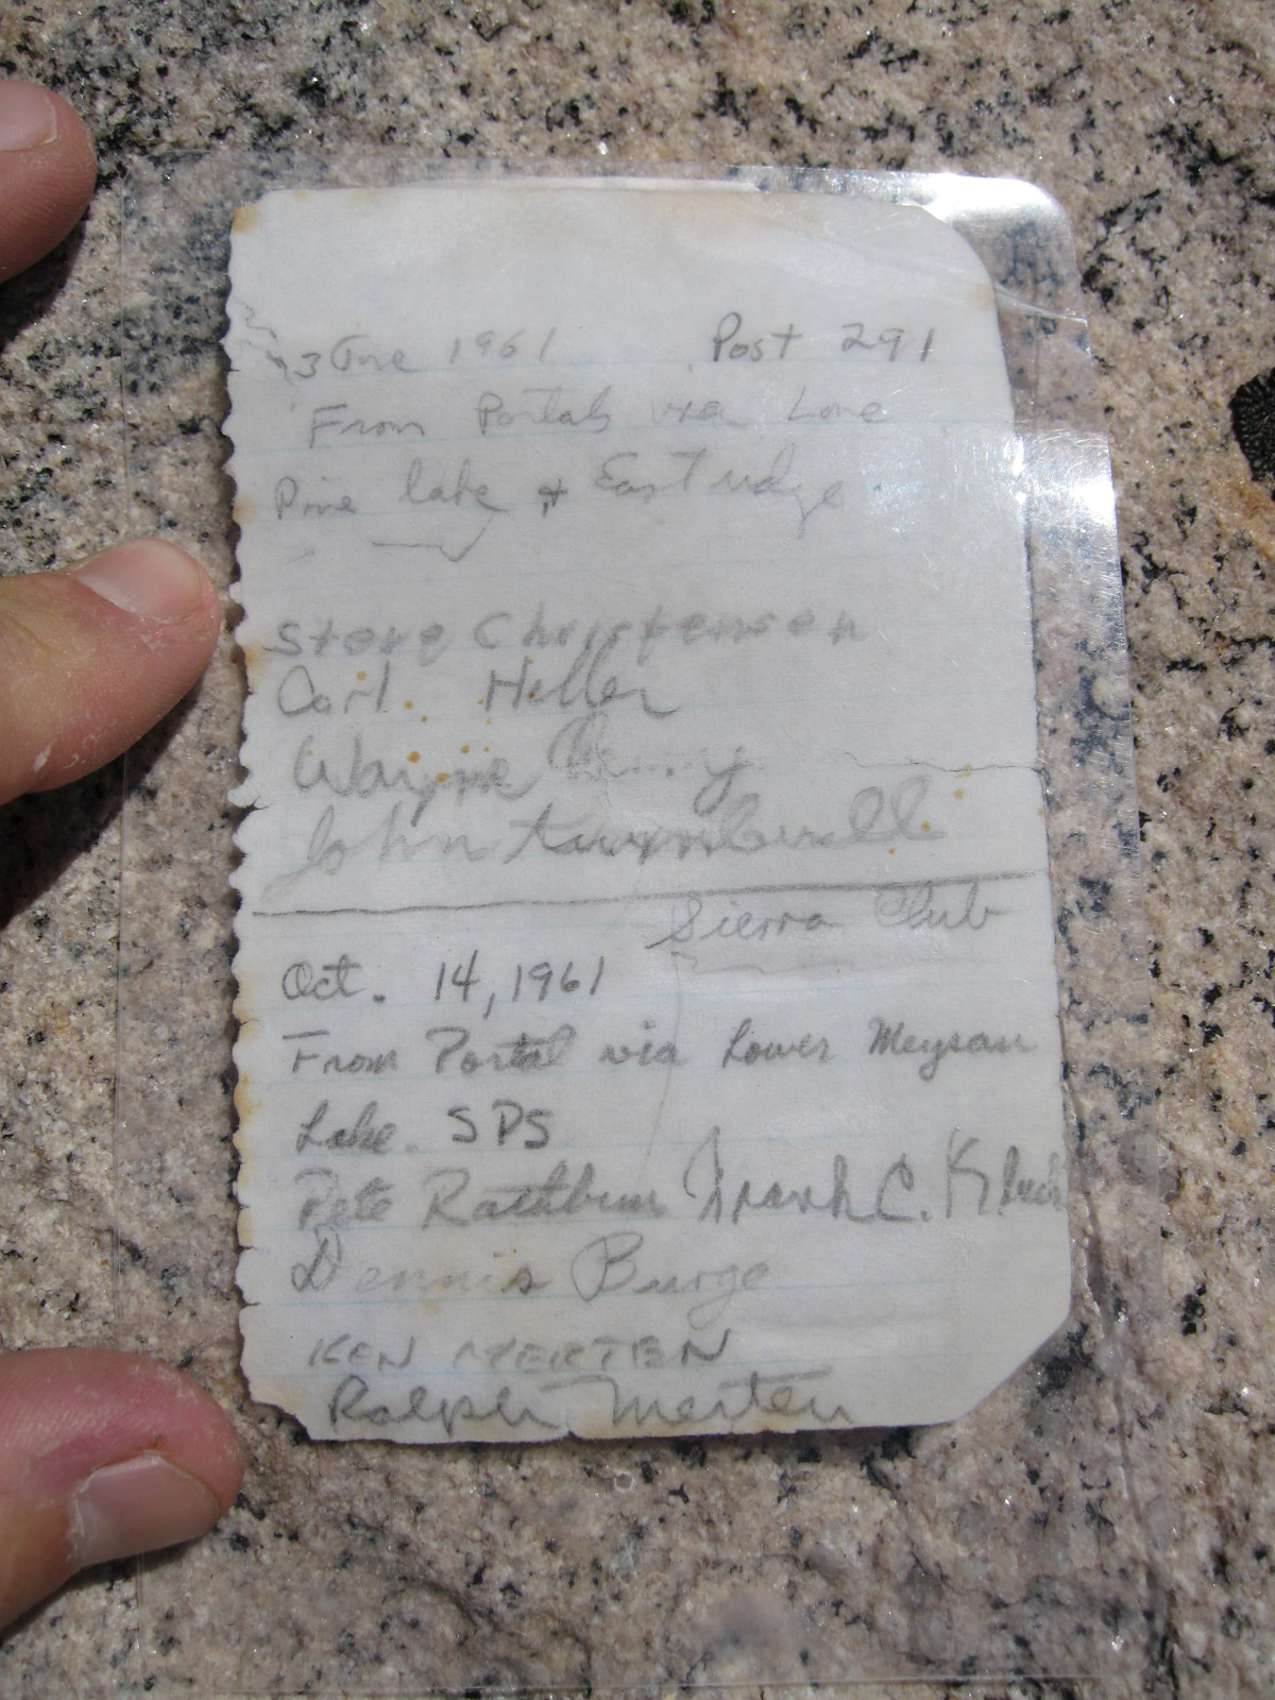 3 June 1961 Post 291
From Portals via Lone
Pine lake & East ridge
Steve Christensen
Carl Heller
Wayne
John
Sierra Club
Oct. 14, 1961
From Portal via Lower Meysan
Lake. SPS
Pete Rathbun Frank C.
Dennis Burge
KEN MERTEN
Ralph Merten